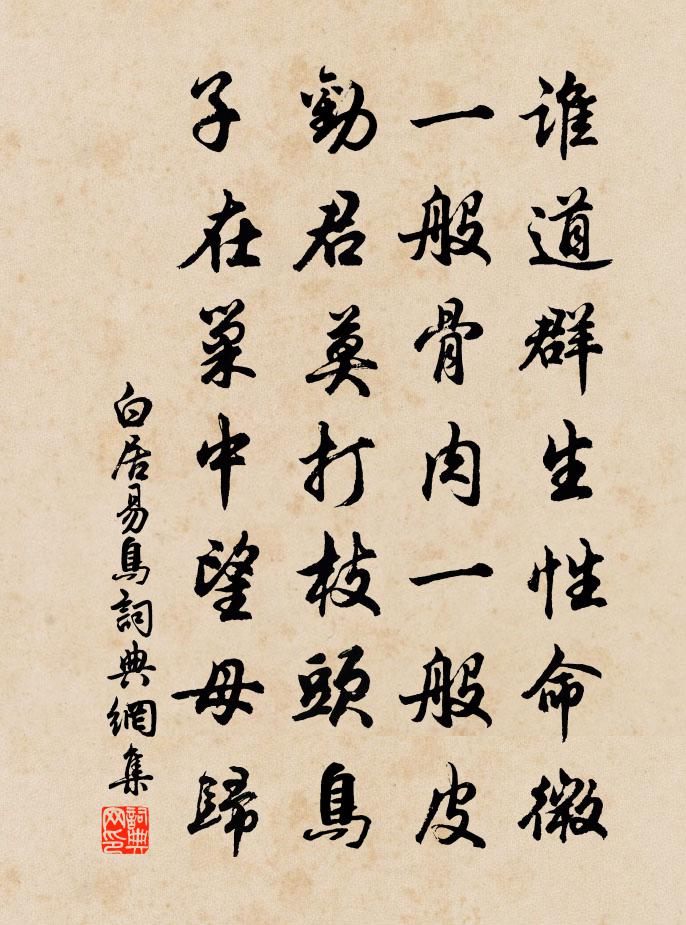 谁道群生性命微
一般骨肉一般皮
勸君莫打枝頭鳥
子在巢中望母歸
白居易鳥詞典網集
詞典网印